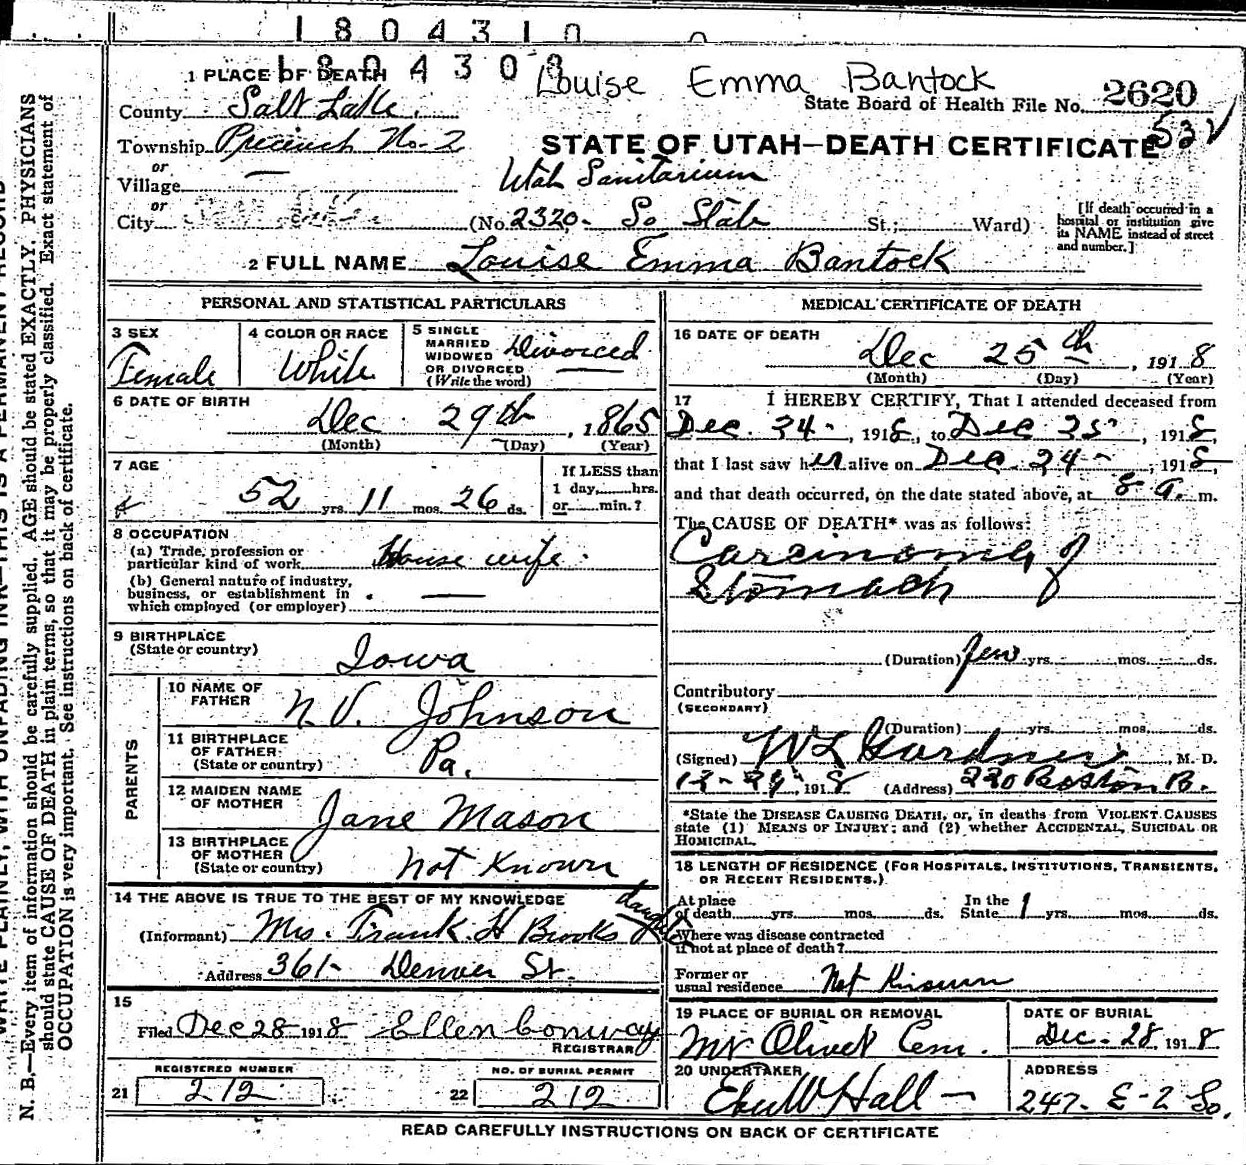 1 8 0 4 3 1 0
1 8 0 4 3 0 8
Louise Emma Bantock
1 PLACE OF DEATH
State Board of Health File No. 2620
County Salt Lake.
532
Township Precinct No. 2
STATE OF UTAH—DEATH CERTIFICATE
or
Village —
Utah Sanitarium
or
City
(No. 2320 - So State St.; Ward)
[If death occurred in a hospital or institution give its NAME instead of street and number.]
2 FULL NAME Louise Emma Bantock
PERSONAL AND STATISTICAL PARTICULARS
3 SEX
Female
4 COLOR OR RACE
White
5 SINGLE MARRIED WIDOWED OR DIVORCED (Write the word)
Divorced
6 DATE OF BIRTH
Dec 29th, 1865
(Month) (Day) (Year)
7 AGE
52 yrs. 11 mos. 26 ds.
If LESS than 1 day, hrs. or min.?
8 OCCUPATION
(a) Trade, profession or particular kind of work House wife.
(b) General nature of industry, business, or establishment in which employed (or employer) —
9 BIRTHPLACE
(State or country) Iowa
PARENTS
10 NAME OF FATHER N. V. Johnson
11 BIRTHPLACE OF FATHER
(State or country) Pa.
12 MAIDEN NAME OF MOTHER Jane Mason
13 BIRTHPLACE OF MOTHER
(State or country) Not Known
14 THE ABOVE IS TRUE TO THE BEST OF MY KNOWLEDGE
(Informant) Mrs. Frank H Brooks daughter
Address 361 - Denver St.
15
Filed Dec 28 1918 Ellen Conway
REGISTRAR
REGISTERED NUMBER
21 212
NO. OF BURIAL PERMIT
22 212
MEDICAL CERTIFICATE OF DEATH
16 DATE OF DEATH
Dec 25th, 1918
(Month) (Day) (Year)
17 I HEREBY CERTIFY, That I attended deceased from
Dec. 24 -, 1918, to Dec 25, 1918,
that I last saw her alive on Dec. 24 -, 1918,
and that death occurred, on the date stated above, at 8 a. m.
The CAUSE OF DEATH* was as follows:
Carcinoma of
Stomach
(Duration) few yrs. mos. ds.
Contributory
(SECONDARY)
(Duration) yrs. mos. ds.
(Signed) W L Gardner, M. D.
, 1918 (Address) 220 Boston B.
*State the DISEASE CAUSING DEATH, or, in deaths from VIOLENT CAUSES
state (1) MEANS OF INJURY; and (2) whether ACCIDENTAL, SUICIDAL OR
HOMICIDAL.
18 LENGTH OF RESIDENCE (FOR HOSPITALS, INSTITUTIONS, TRANSIENTS,
OR RECENT RESIDENTS.)
At place of death yrs. mos. ds. In the State 1 yrs. mos. ds.
Where was disease contracted
if not at place of death?
Former or
usual residence Not Known
19 PLACE OF BURIAL OR REMOVAL
Mt Olivet Cem.
DATE OF BURIAL
Dec. 28 1918
20 UNDERTAKER
Eber W Hall —
ADDRESS
247 - E - 2 So.
READ CAREFULLY INSTRUCTIONS ON BACK OF CERTIFICATE
WRITE PLAINLY, WITH UNFADING INK—THIS IS A PERMANENT RECORD
N. B.—Every item of information should be carefully supplied. AGE should be stated EXACTLY. PHYSICIANS
should state CAUSE OF DEATH in plain terms, so that it may be properly classified. Exact statement of
OCCUPATION is very important. See instructions on back of certificate.